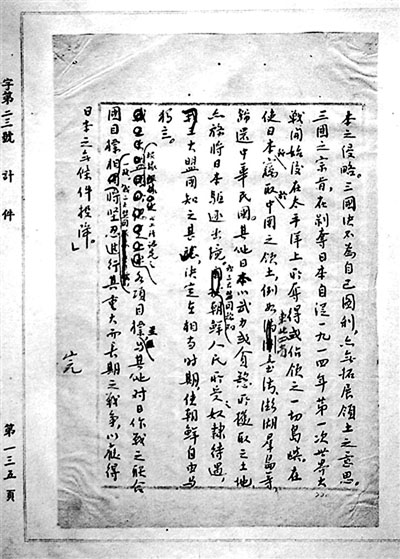 本之侵略。三國決不為自己圖利,亦無拓展領土之意思。
三國之宗旨,在剝奪日本自從一九一四年第一次世界大
戰開始後在太平洋上所奪得或佔領之一切島嶼,在
使日本所竊取中國之領土,例如東北四省臺灣、澎湖羣島等,
歸還中華民國。其他日本以武力或貪慾所攫取之土地
亦務將日本驅逐出境。我三大盟國稔知朝鮮人民所受之奴隸待遇,
大盟國知之甚 決定在相當時期,使朝鮮自由與
獨立。
我三大盟國 各項目標與其他對日作戰之聯合
國目標相 將堅忍進行其重大而長期之戰爭,以獲得
日本之無條件投降。」
完
字第二三號 計 件
第一三五頁